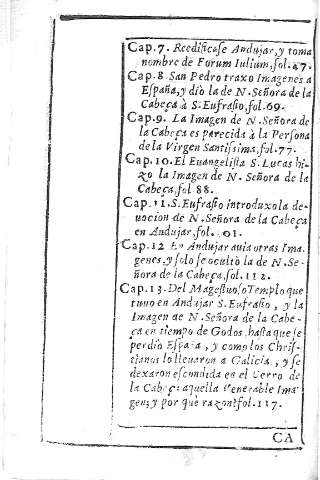 Cap.7. Reedificase Andujar, y toma
nombre de Forum Iulium, fol.47.
Cap.8. San Pedro traxo Imagenes a
España, y dio la de N. Señora de la
Cabeça à S. Eufrasio, fol.69.
Cap.9. La Imagen de N. Señora de
la Cabeça es parecida à la Persona
de la Virgen Santissima, fol.77.
Cap.10. El Euangelista S. Lucas hi-
zo la Imagen de N. Señora de la
Cabeça, fol 88.
Cap.11. S. Eufrasio introduxo la de-
uocion de N. Señora de la Cabeça
en Andujar, fol. 01.
Cap.12 En Andujar auia otras Ima
genes, y solo se ocultò la de N. Se-
ñora de la Cabeça, fol.112.
Cap.13. Del Magestuoso Templo que
tuuo en Andujar S. Eufrasio, y la
Imagen de N. Señora de la Cabe-
ça en tiempo de Godos, hasta que se
perdiò España, y como los Chris-
tianos lo lleuaron a Galicia, y se
dexaron escondida en el Cerro de
la Cabeça aquella Venerable Ima
gen; y por què razon? fol.117.
CA